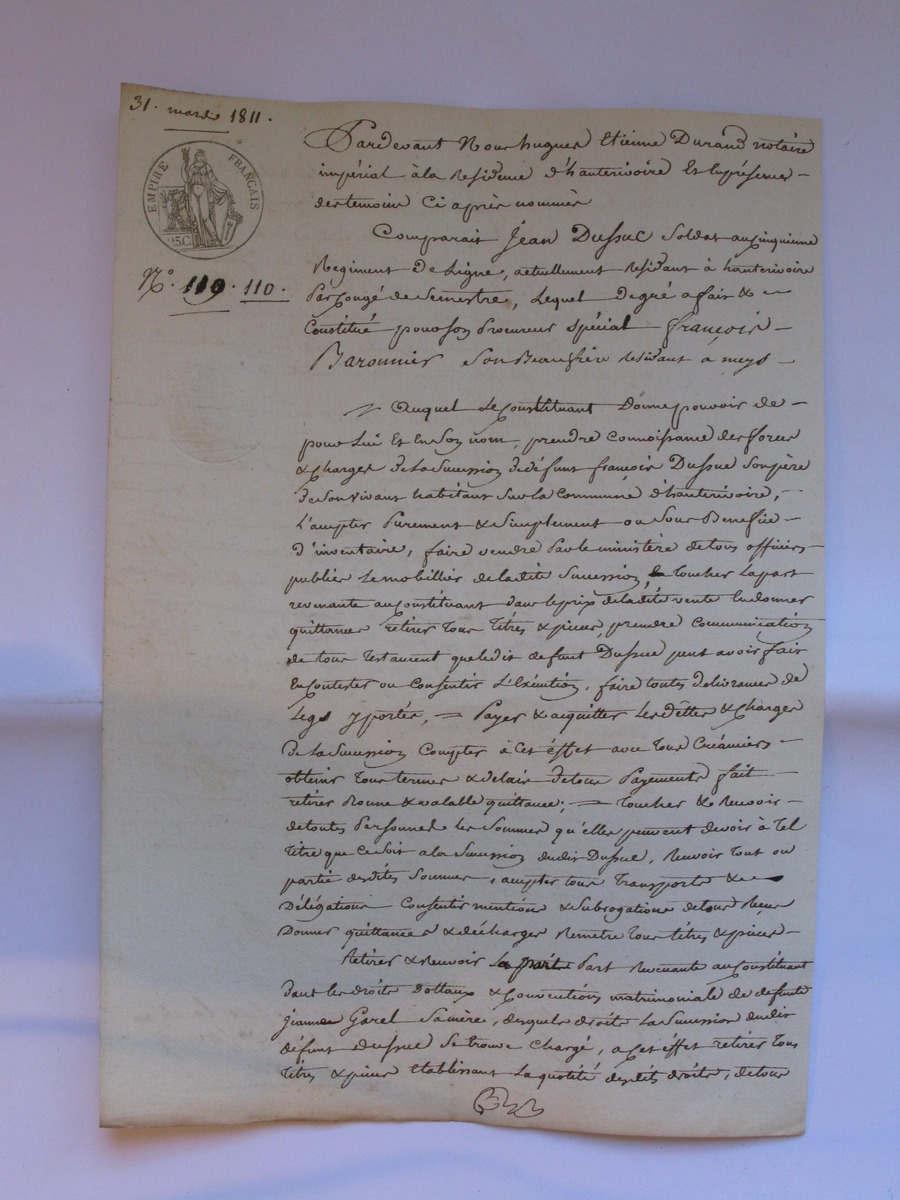 31. mars 1811.
EMPIRE FRANÇAIS
25C
N°. 119. 110.
Pardevant Nous hugues Etienne Durand notaire
impérial à la Residence d'hauterivoire Et En présence
des temoins Ci après nommés
Comparait Jean Dussuc Soldat au Cinquieme
Regiment de Ligne, actuellement Résidant à hauterivoire
Par Congé de Semestre, Lequel de gré a fait &
Constitué pour son Procureur spécial françois
Baronnier Son Beaufrère residant a meys
Auquel le Constituant Donne pouvoir de
pour Lui Et En Son nom, prendre Connoissance des forces
& Charges de la Succession de défunt françois Dussuc Son père
de Son vivant habitant Sur la Commune d'hauterivoire,
L'accepter Purement & Simplement ou Sous Benefice
d'inventaire, faire vendre Par le ministère de tous officiers
publics Le mobillier de la dite Succession, toucher La part
revenante au Constituant dans le prix de la dite vente En donner
quittances retirer tous titres & pieces, prendre Communication
de tous Testament que ledit defunt Dussuc peut avoir fait
En Contester ou Consentir L'Exécution, faire toutes delivrances de
Legs y portés, = Payer & acquitter Les dettes & Charges
de la Succession Compter à Cet éffet avec tous Créanciers
obtenir tous termes & delais de tous Payements fait
retirer Bonne & valable quittance; = toucher & Recevoir
de toutes Personnes les Sommes qu'elles peuvent devoir à tel
titre que Ce Soit a la Succession dudit Dussuc, Recevoir tout ou
partie desdites Sommes, accepter tous Transports &
Délégations Consentir mentions & Subrogations de tous Reçus
Donner quittances & décharges Remettre tous titres & pieces
Retirer & Recevoir La Part Revenante au Constituant
dans les droits Dottaux & Conventions matrimoniale de defunte
jeanne Garel Sa mère, desquels droits La Succession dudit
défunt Dussuc Se trouve Chargé, a Cet effet retirer tous
titres & pieces Etablissant La quotité desdits droits, de tous